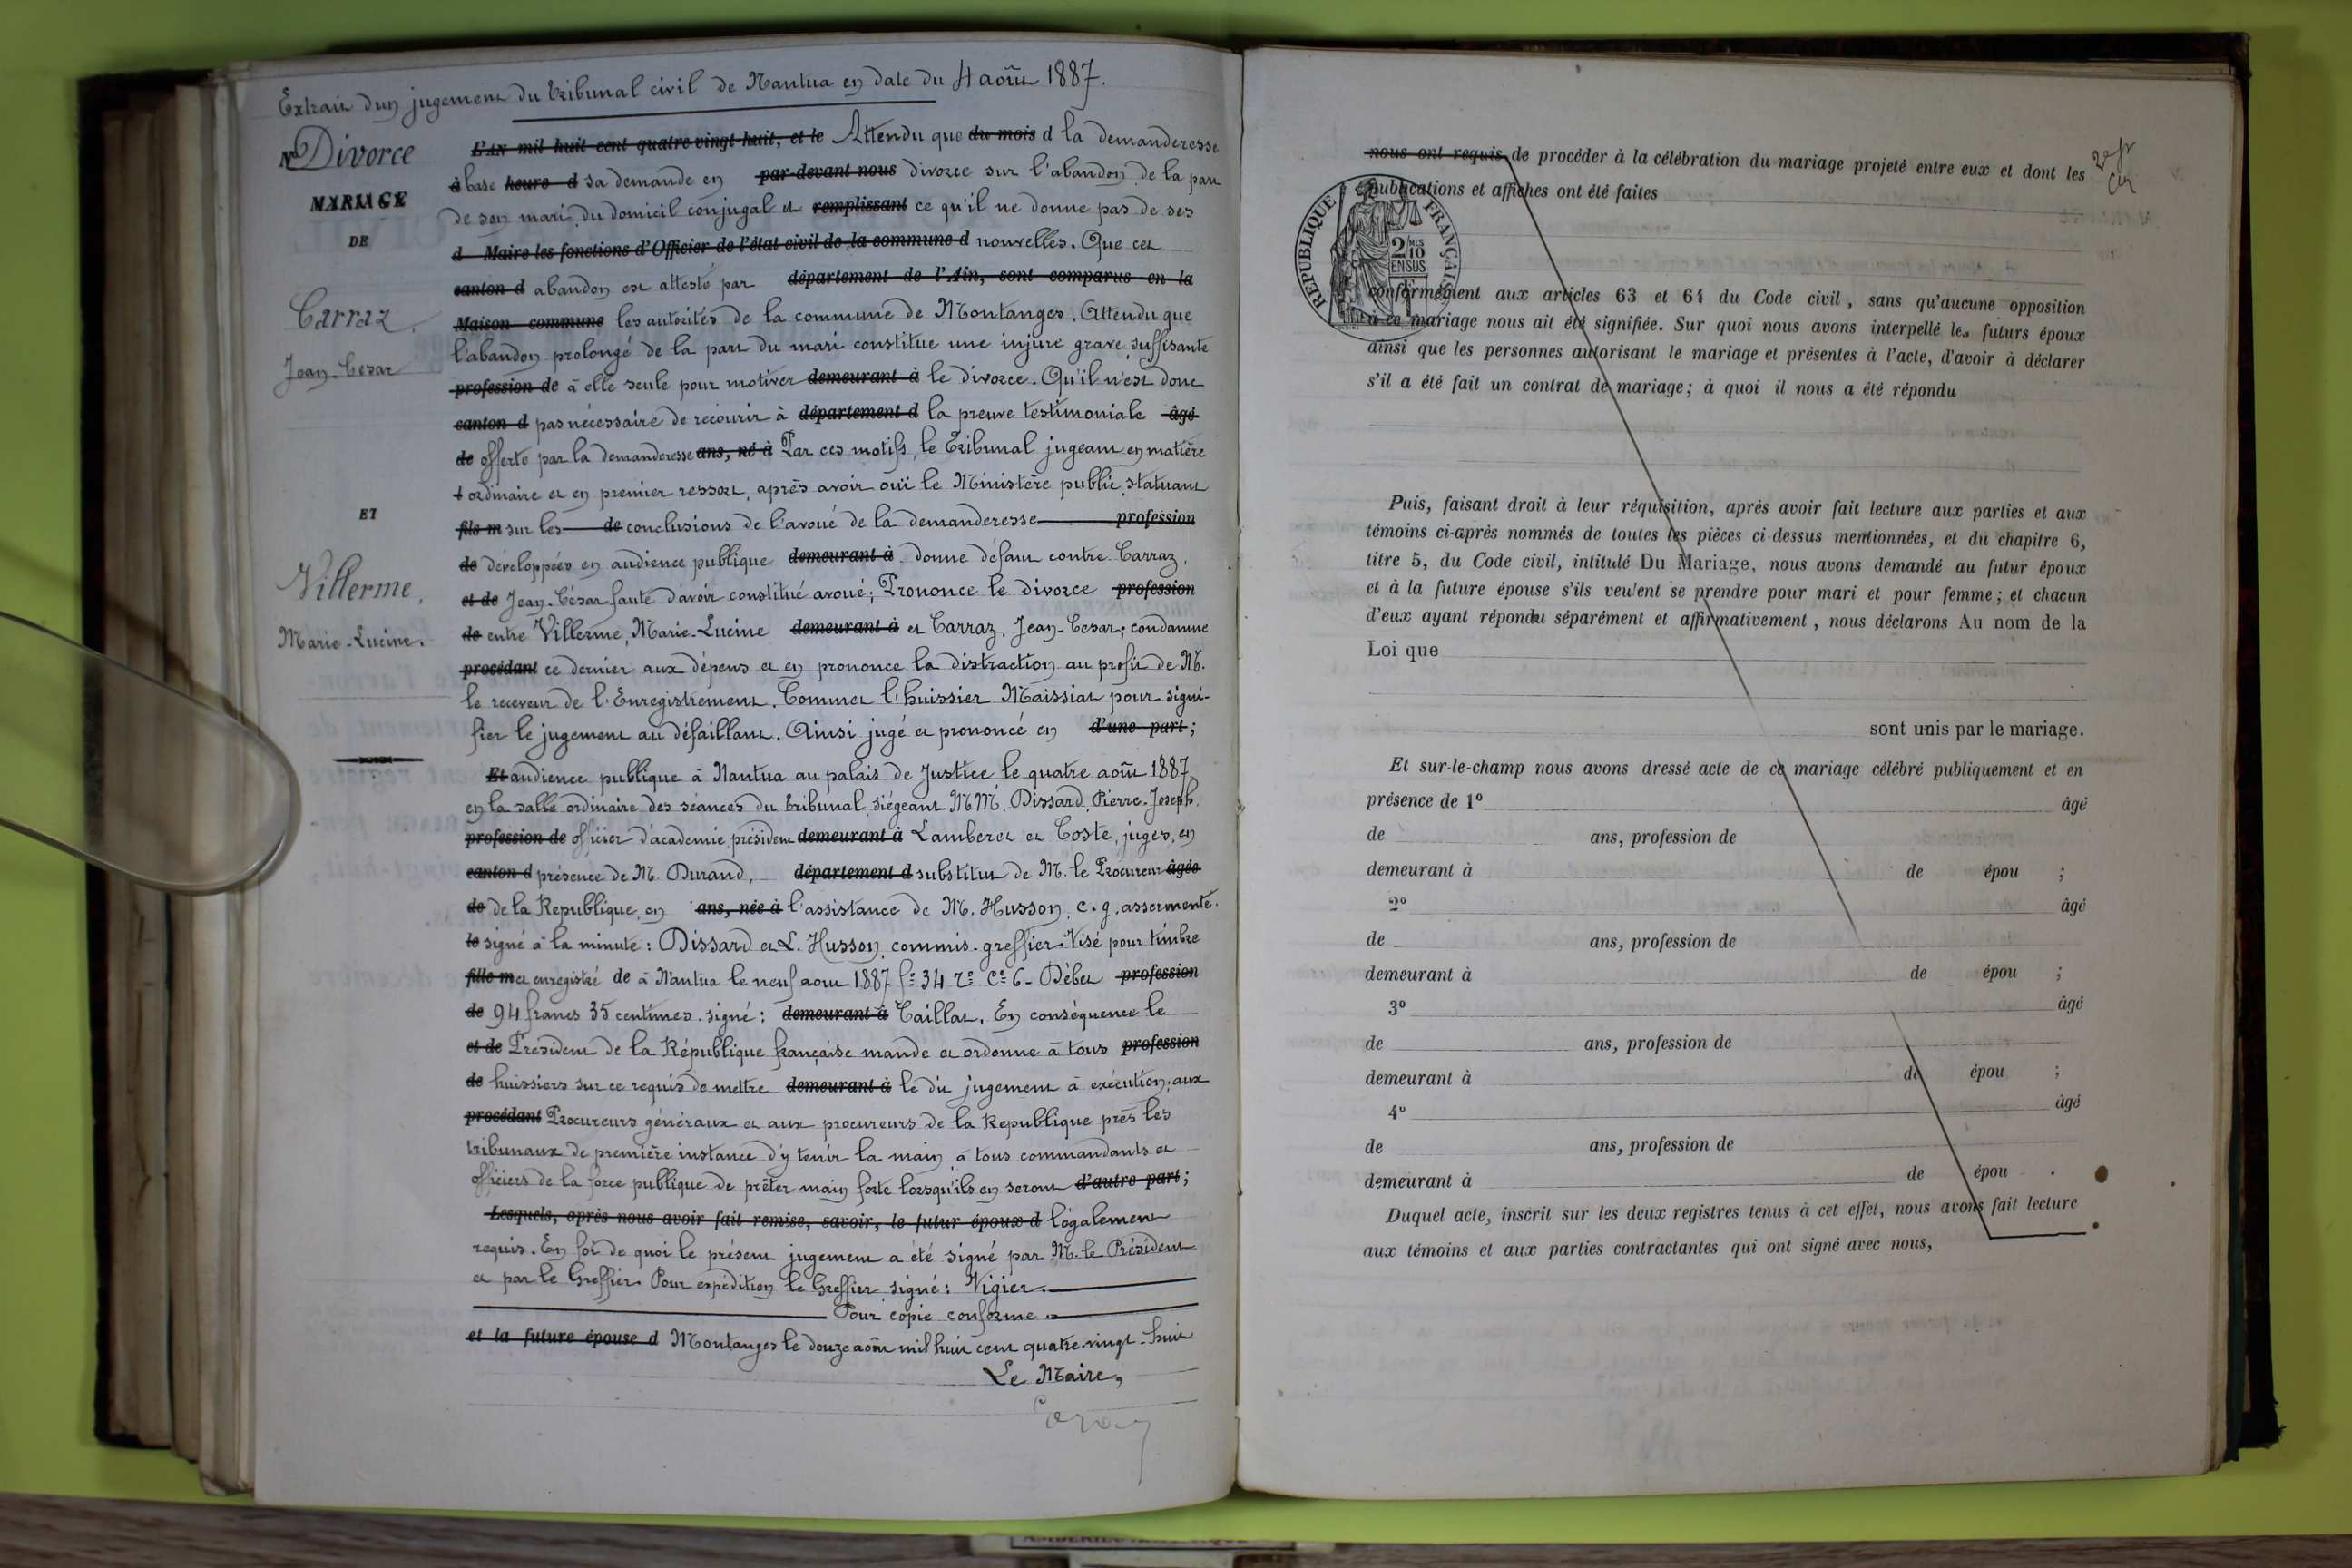 Extrait d'un jugement du Tribunal civil de Nantua en date du 4 août 1887.
N° Divorce
MARIAGE
DE
Carraz
Jean-Cesar
ET
Villerme,
Marie-Lucine.
L'AN mil huit cent quatre-vingt-huit, et le Attendu que du mois d la demanderesse
à base heure d sa demande en par-devant nous divorce sur l'abandon de la part
de son mari du domicil conjugal et remplissant ce qu'il ne donne pas de ses
d Maire les fonctions d'Officier de l'état civil de la commune d nouvelles. Que cet
canton d abandon est attesté par département de l'Ain, sont comparus en la
Maison commune les autorités de la commune de Montanges. Attendu que
l'abandon prolongé de la part du mari constitue une injure grave suffisante
profession de à elle seule pour motiver demeurant à le divorce. Qu'il n'est donc
canton d pas nécessaire de recourir à département d la preuve testimoniale âgé
de offerte par la demanderesse ans, né à Par ces motifs, le Tribunal jugeant en matière
ordinaire et en premier ressort, après avoir ouï le Ministère public, statuant
fils m sur les de conclusions de l'avoué de la demanderesse profession
de développées en audience publique demeurant à donne défaut contre Carraz,
et de Jean-César faute d'avoir constitué avoué; Prononce le divorce profession
de entre Villerme, Marie-Lucine demeurant à et Carraz, Jean-Cesar; condamne
procédant ce dernier aux dépens et en prononce la distraction au profit de M.
le receveur de l'Enregistrement. Commet l'huissier Maissiat pour signi-
fier le jugement au défaillant. Ainsi jugé et prononcé en d'une part;
Et audience publique à Nantua au palais de Justice le quatre août 1887
en la salle ordinaire des séances du tribunal, siégeant M.M. Dissard, Pierre-Joseph.
profession de officier d'académie, président demeurant à Lamberet et Coste, juges, en
canton d présence de M. Durand, département d substitut de M. le Procureur âgée
de de la Republique, en ans, née à l'assistance de M. Husson, c. g. assermenté.
le signé à la minute: Dissard et L. Husson, commis-greffier. Visé pour timbre
fille m et enregistré de à Nantua le neuf aout 1887 f° 34 r° c° 6 - Débet profession
de 94 francs 35 centimes. signé: demeurant à Taillat. En conséquence le
et de President de la République française mande et ordonne à tous profession
de huissiers sur ce requis de mettre demeurant à le dit jugement à exécution; aux
procédant Procureurs généraux et aux procureurs de la Republique près les
tribunaux de première instance d'y tenir la main, à tous commandants et
officiers de la force publique de prêter main forte lorsqu'ils en seront d'autre part;
Lesquels, après nous avoir fait remise, savoir, le futur époux d légalement
requis. En foi de quoi le présent jugement a été signé par M. le Président
et par le Greffier. Pour expédition le Greffier signé: Vigier.
Pour copie conforme.
et la future épouse d Montanges le douze août mil huit cent quatre-vingt-huit
Le Maire,
nous ont requis de procéder à la célébration du mariage projeté entre eux et dont les
publications et affiches ont été faites
REPUBLIQUE FRANÇAISE
2 MES 10
EN SUS
conformément aux articles 63 et 64 du Code civil, sans qu'aucune opposition
à ce mariage nous ait été signifiée. Sur quoi nous avons interpellé les futurs époux
ainsi que les personnes autorisant le mariage et présentes à l'acte, d'avoir à déclarer
s'il a été fait un contrat de mariage; à quoi il nous a été répondu
Puis, faisant droit à leur réquisition, après avoir fait lecture aux parties et aux
témoins ci-après nommés de toutes les pièces ci-dessus mentionnées, et du chapitre 6,
titre 5, du Code civil, intitulé Du Mariage, nous avons demandé au futur époux
et à la future épouse s'ils veulent se prendre pour mari et pour femme; et chacun
d'eux ayant répondu séparément et affirmativement, nous déclarons Au nom de la
Loi que
sont unis par le mariage.
Et sur-le-champ nous avons dressé acte de ce mariage célébré publiquement et en
présence de 1° âgé
de ans, profession de
demeurant à de épou ;
2° âgé
de ans, profession de
demeurant à de épou ;
3° âgé
de ans, profession de
demeurant à de épou ;
4° âgé
de ans, profession de
demeurant à de épou .
Duquel acte, inscrit sur les deux registres tenus à cet effet, nous avons fait lecture
aux témoins et aux parties contractantes qui ont signé avec nous,